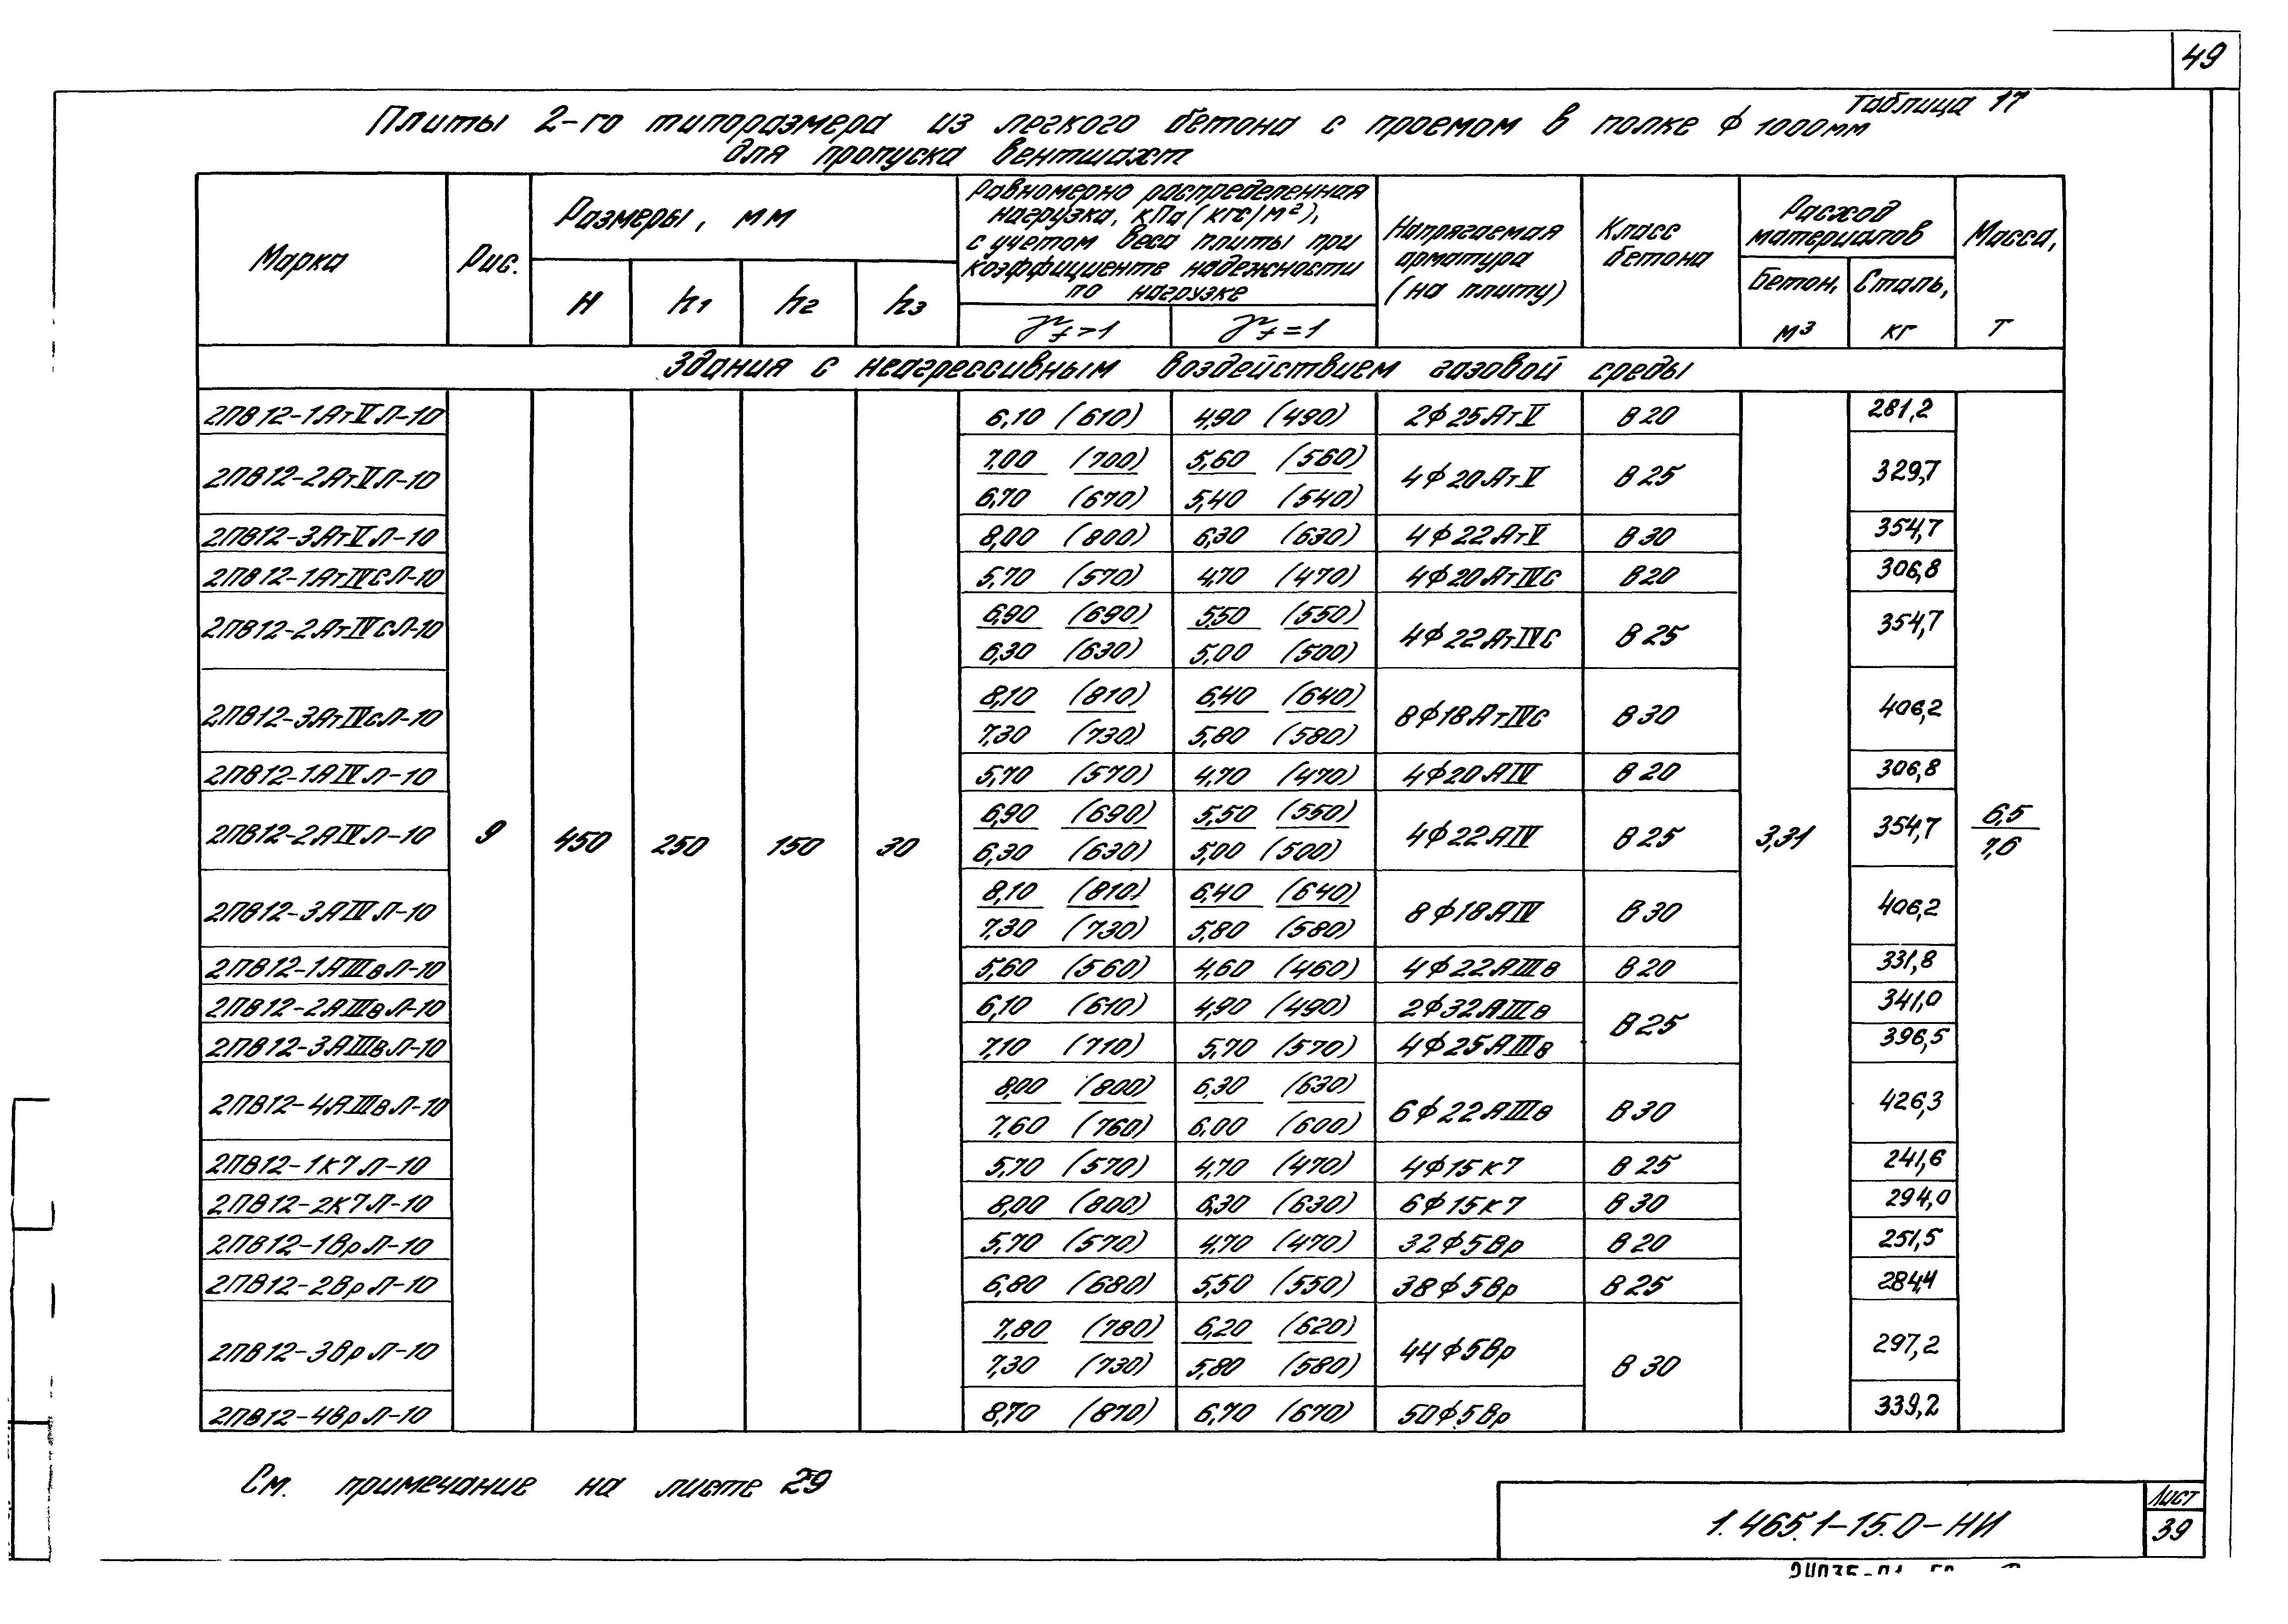 49
Таблица 17
Плиты 2-го типоразмера из легкого бетона с проемом в полке ϕ 1000мм
для пропуска вентшахт
Марка | Рис. | Размеры, мм | Равномерно распределенная нагрузка, кПа (кгс/м²), с учетом веса плиты при коэффициенте надежности по нагрузке | Напрягаемая арматура (на плиту) | Класс бетона | Расход материалов | Масса, т
H | h1 | h2 | h3 | γf>1 | γf=1 | Бетон, м³ | Сталь, кг
Здания с неагрессивным воздействием газовой среды
2ПВ12-1АтVЛ-10 | 6,10 (610) | 4,90 (490) | 2ϕ25АтV | В20 | 281,2
2ПВ12-2АтVЛ-10 | 7,00 (700) / 6,70 (670) | 5,60 (560) / 5,40 (540) | 4ϕ20АтV | В25 | 329,7
2ПВ12-3АтVЛ-10 | 8,00 (800) | 6,30 (630) | 4ϕ22АтV | В30 | 354,7
2ПВ12-1АтIVСЛ-10 | 5,70 (570) | 4,70 (470) | 4ϕ20АтIVС | В20 | 306,8
2ПВ12-2АтIVСЛ-10 | 6,90 (690) / 6,30 (630) | 5,50 (550) / 5,00 (500) | 4ϕ22АтIVС | В25 | 354,7
2ПВ12-3АтIVСЛ-10 | 8,10 (810) / 7,30 (730) | 6,40 (640) / 5,80 (580) | 8ϕ18АтIVС | В30 | 406,2
2ПВ12-1АIVЛ-10 | 5,70 (570) | 4,70 (470) | 4ϕ20АIV | В20 | 306,8
2ПВ12-2АIVЛ-10 | 9 | 450 | 250 | 150 | 30 | 6,90 (690) / 6,30 (630) | 5,50 (550) / 5,00 (500) | 4ϕ22АIV | В25 | 3,31 | 354,7 | 6,5 / 7,6
2ПВ12-3АIVЛ-10 | 8,10 (810) / 7,30 (730) | 6,40 (640) / 5,80 (580) | 8ϕ18АIV | В30 | 406,2
2ПВ12-1АIIIвЛ-10 | 5,60 (560) | 4,60 (460) | 4ϕ22АIIIв | В20 | 331,8
2ПВ12-2АIIIвЛ-10 | 6,10 (610) | 4,90 (490) | 2ϕ32АIIIв | В25 | 341,0
2ПВ12-3АIIIвЛ-10 | 7,10 (710) | 5,70 (570) | 4ϕ25АIIIв | 396,5
2ПВ12-4АIIIвЛ-10 | 8,00 (800) / 7,60 (760) | 6,30 (630) / 6,00 (600) | 6ϕ22АIIIв | В30 | 426,3
2ПВ12-1К7Л-10 | 5,70 (570) | 4,70 (470) | 4ϕ15К7 | В25 | 241,6
2ПВ12-2К7Л-10 | 8,00 (800) | 6,30 (630) | 6ϕ15К7 | В30 | 294,0
2ПВ12-1ВрЛ-10 | 5,70 (570) | 4,70 (470) | 32ϕ5Вр | В20 | 251,5
2ПВ12-2ВрЛ-10 | 6,80 (680) | 5,50 (550) | 38ϕ5Вр | В25 | 284,4
2ПВ12-3ВрЛ-10 | 7,80 (780) / 7,30 (730) | 6,20 (620) / 5,80 (580) | 44ϕ5Вр | В30 | 297,2
2ПВ12-4ВрЛ-10 | 8,70 (870) | 6,70 (670) | 50ϕ5Вр | 339,2
См. примечание на листе 29
1.465.1-15.0-НИ
Лист
39